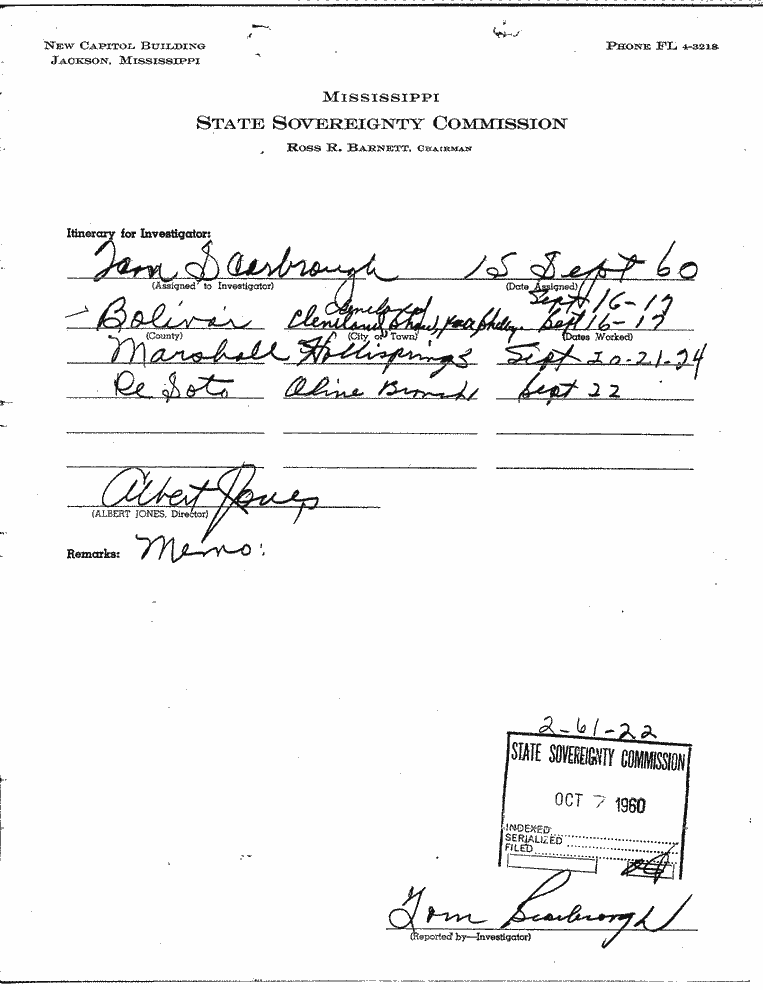 NEW CAPITOL BUILDING
JACKSON, MISSISSIPPI
PHONE FL 4-3218
MISSISSIPPI
STATE SOVEREIGNTY COMMISSION
ROSS R. BARNETT, CHAIRMAN
Itinerary for Investigator:
Tom Scarbrough 15 Sept 60
(Assigned to Investigator) (Date Assigned)
Cleveland Sept 16-17
Bolivar Cleveland Shaw, Sept 16-17
(County) (City or Town) (Dates Worked)
Marshall Hollisprings Sept 20-21-24
De Soto Olive Branch Sept 22
Albert Jones
(ALBERT JONES, Director)
Remarks: Memo:
2-61-22
STATE SOVEREIGNTY COMMISSION
OCT 7 1960
INDEXED
SERIALIZED
FILED
Tom Scarbrough
(Reported by—Investigator)